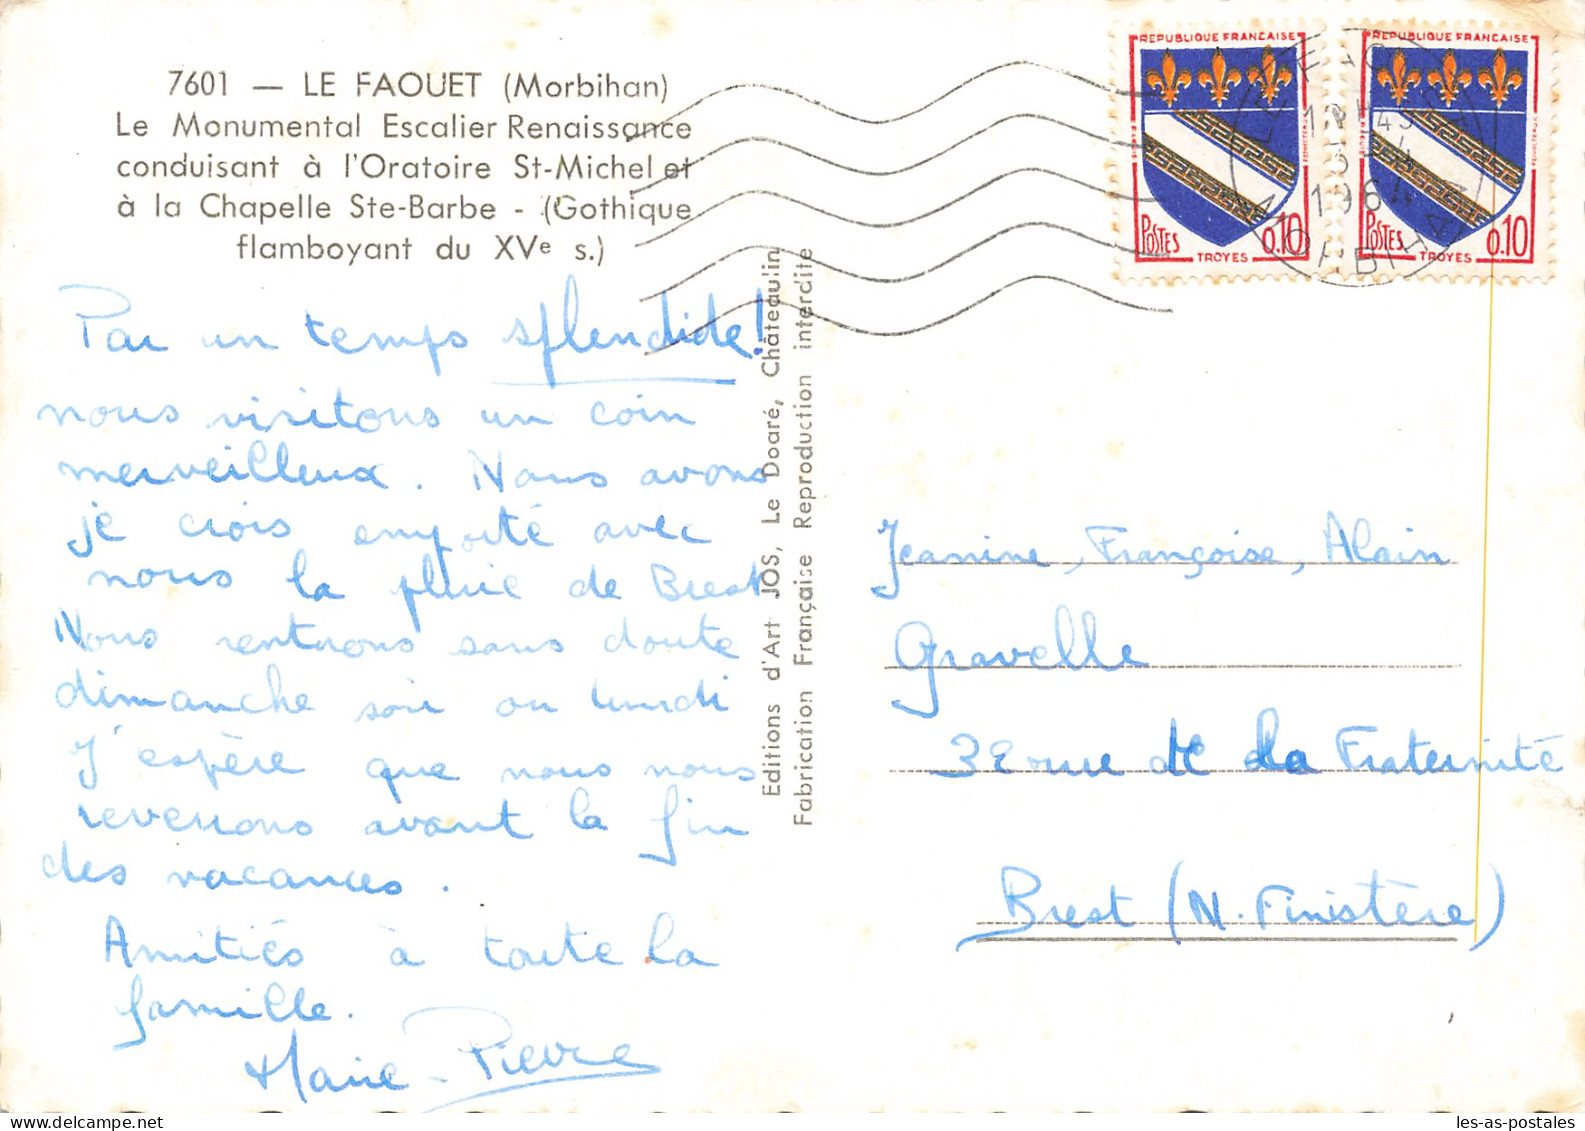 7601 — LE FAOUET (Morbihan)
Le Monumental Escalier Renaissance
conduisant à l'Oratoire St-Michel et
à la Chapelle Ste-Barbe - (Gothique
flamboyant du XVe s.)
Par un temps splendide!
nous visitons un coin
merveilleux. Nous avons
je crois emporté avec
nous la pluie de Brest
Nous rentrons sans doute
dimanche soir ou lundi
J'espère que nous nous
reverrons avant la fin
des vacances.
Amitiés à toute la
famille.
Marie-Pierre
Editions d'Art JOS, Le Doaré, Châteaulin
Fabrication Française Reproduction interdite
REPUBLIQUE FRANÇAISE
POSTES
0.10
TROYES
REPUBLIQUE FRANÇAISE
POSTES
0.10
TROYES
LE FAOUET
MORBIHAN
Jeanine, Françoise, Alain
Gravelle
32 rue de la Fraternité
Brest (N. Finistère)
les-as-postales - delcampe.net